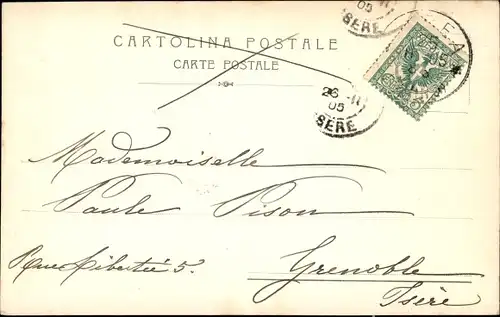 05
ISERE
CARTOLINA POSTALE
CARTE POSTALE
26
05
ISERE
Mademoiselle
Paule Pison
Rue Liberté 5.
Grenoble
Isère